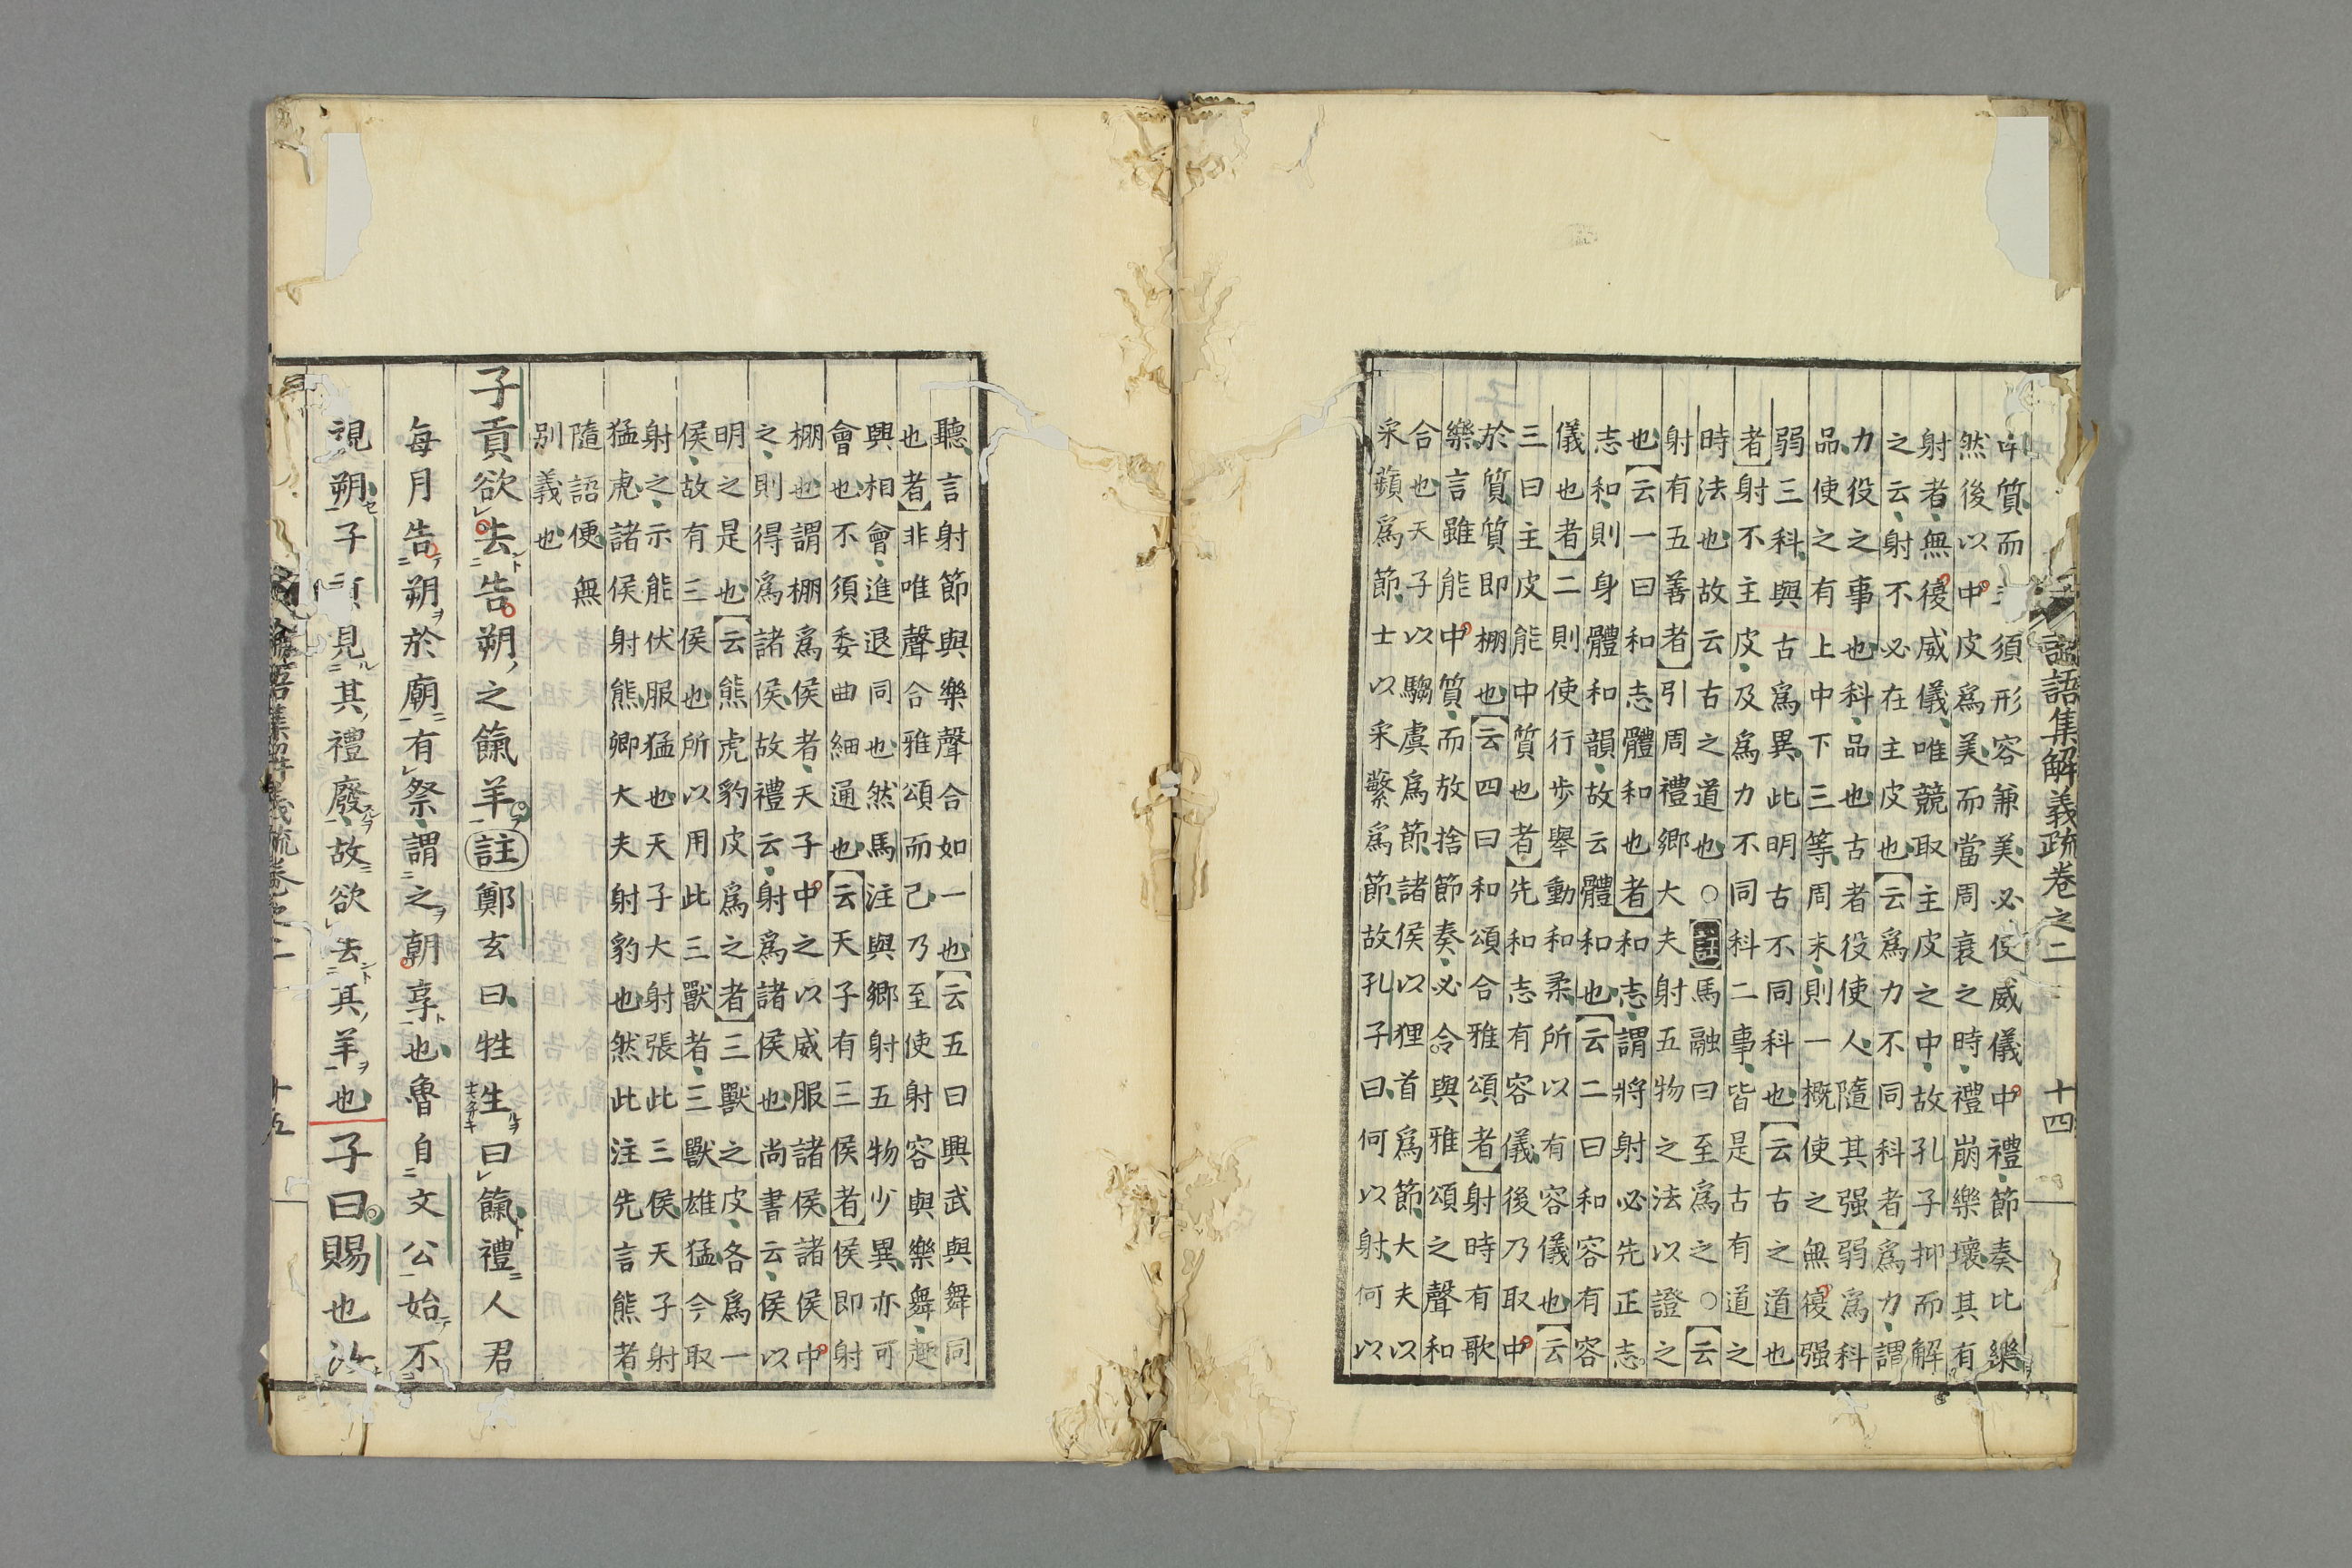 論語集解義疏卷之二 十四
中質而 須形容兼美必使威儀中禮節奏比樂
然後以中皮爲美而當周衰之時禮崩樂壞其有
射者無復威儀唯競取主皮之中故孔子抑而解
之云射不必在主皮也云爲力不同科者爲力謂
力役之事也科品也古者役使人隨其强弱爲科
品使之有上中下三等周末則一概使之無復强
弱三科與古爲異此明古不同科也云古之道也
者射不主皮及爲力不同科二事皆是古有道之
時法也故云古之道也○註馬融曰至爲之○云
射有五善者引周禮鄉大夫射五物之法以證之
也云一曰和志體和也者和志謂將射必先正志
志和則身體和韻故云體和也云二曰和容有容
儀也者二則使行步舉動和柔所以有容儀也云
三曰主皮能中質也者先和志有容儀後乃取中
於質質即棚也云四曰和頌合雅頌者射時有歌
樂言雖能中質而放捨節奏必令與雅頌之聲和
合也天子以騶虞爲節諸侯以狸首爲節大夫以
采蘋爲節士以采蘩爲節故孔子曰何以射何以
聽言射節與樂聲合如一也云五曰興武與舞同
也者非唯聲合雅頌而已乃至使射容與樂舞趣
興相會進退同也然馬注與鄉射五物少異亦可
會也不須委曲細通也云天子有三侯者侯即射
棚也謂棚爲侯者天子中之以威服諸侯諸侯中
之則得爲諸侯故禮云射爲諸侯也尚書云侯以
明之是也云熊虎豹皮爲之者三獸之皮各爲一
侯故有三侯也所以用此三獸者三獸雄猛今取
射之示能伏服猛也天子大射張此三侯天子射
猛虎諸侯射熊卿大夫射豹也然此注先言熊者
隨語便無
別義也
子貢欲去告朔之餼羊註鄭玄曰牲生曰餼禮人君
每月告朔於廟有祭謂之朝享也魯自文公始不
視朔子貢見其禮廢故欲去其羊也子曰賜也汝
論語集解義疏卷之二 十五